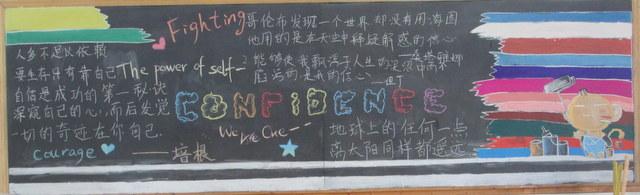 Fighting
哥伦布发现一个世界,却没有用海图
他用的是在天空中释疑解惑的信心
人多不足以依赖
要生存只有靠自己
The power of self-
2.能够使我飘浮于人生的泥沼中而不
陷污的是我的信心
——但丁
自信是成功的第一秘诀
深窥自己的心,而后发觉
一切的奇迹在你自己.
CONFIDENCE
We are one---
courage
——培根
地球上的任何一点
离太阳同样都遥远